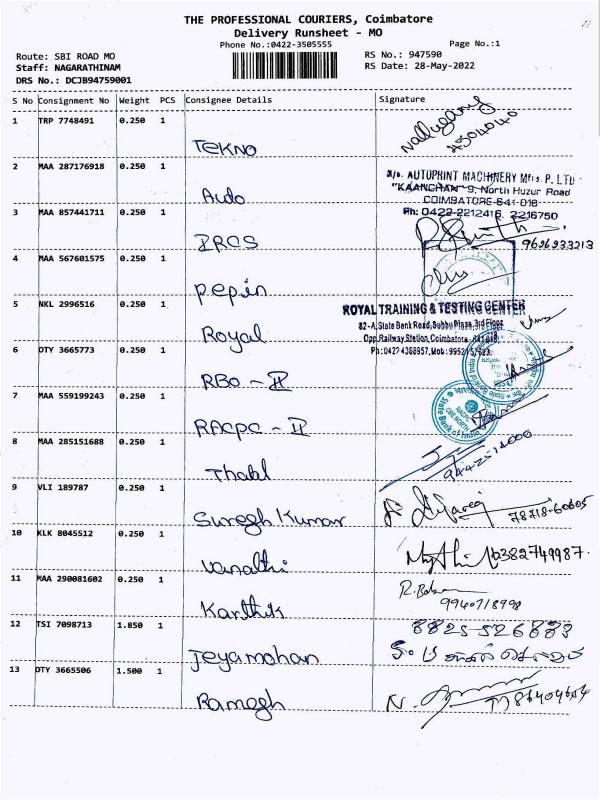 THE PROFESSIONAL COURIERS, Coimbatore
Delivery Runsheet - MO
Phone No.:0422-3505555
Page No.:1
Route: SBI ROAD MO
RS No.: 947590
Staff: NAGARATHINAM
RS Date: 28-May-2022
DRS No.: DCJB94759001
S No Consignment No Weight PCS Consignee Details Signature
1 TRP 7748491 0.250 1
TEKNO
2 MAA 287176918 0.250 1
M/s. AUTOPRINT MACHINERY Mfrs. P. LTD
"KAANCHAN" 9, North Huzur Road
COIMBATORE-641 018
Ph: 0422-2212416, 2216750
Auto
3 MAA 857441711 0.250 1
9626233213
IRCS
4 MAA 567601575 0.250 1
Pepin
5 NKL 2996516 0.250 1
ROYAL TRAINING & TESTING CENTER
82-A, State Bank Road, Subbu Plaza, 3rd Floor,
Opp. Railway Station, Coimbatore - 641 018
Royal
6 DTY 3665773 0.250 1
RBO - II
7 MAA 559199243 0.250 1
State Bank of India
RACPC - II
8 MAA 285151688 0.250 1
Thalal
9 VLI 189787 0.250 1
78718-60605
Suregh Kumar
10 KLK 8045512 0.250 1
6382749987
Vanathi
11 MAA 290081602 0.250 1
9940718990
Karthik
12 TSI 7098713 1.850 1
8825-526883
Jeyamohan
13 DTY 3665506 1.500 1
Ramegh